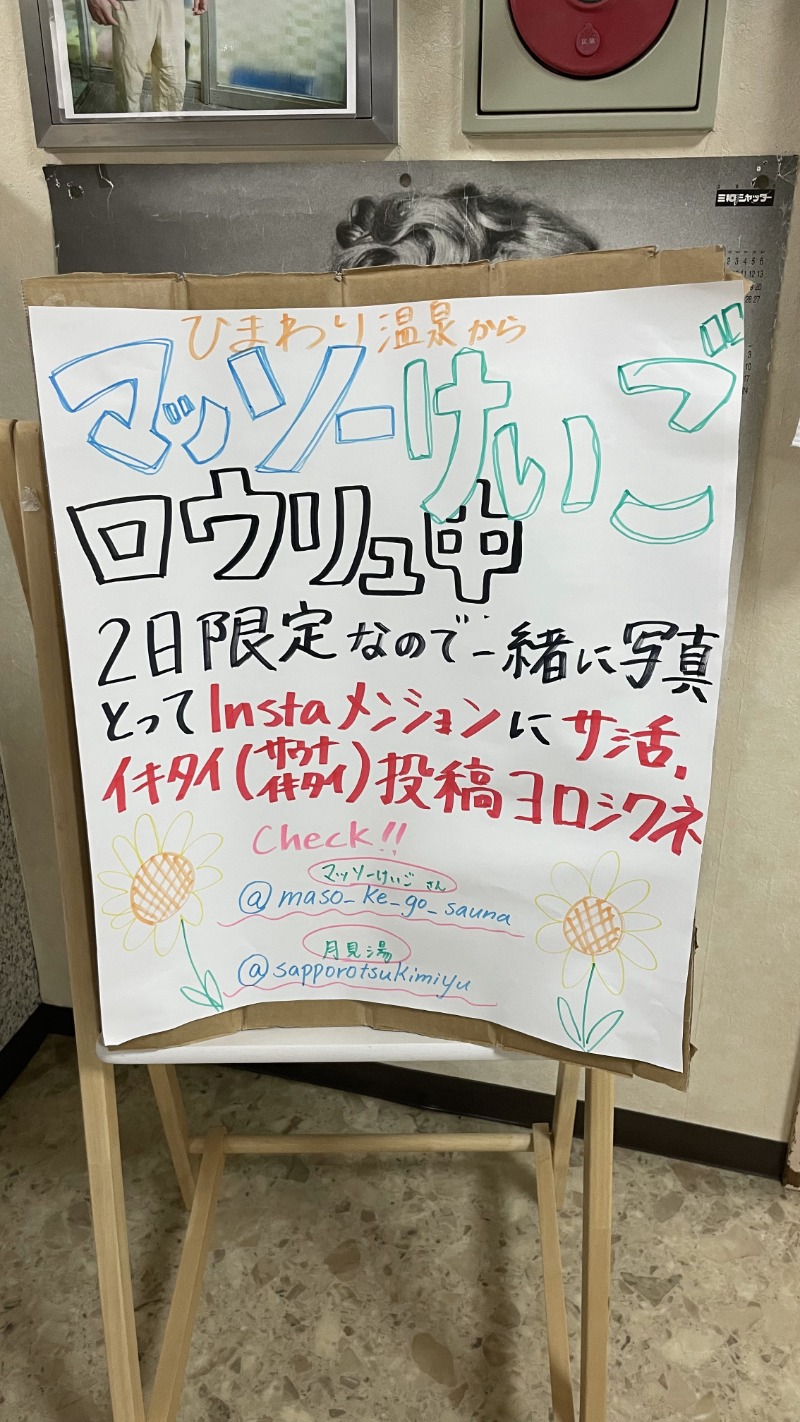 三和シャッター
ひまわり温泉から
マッソーけいご
ロウリュ中
2日限定なので一緒に写真
とってInstaメンションにサ活,
イキタイ(サウナイキタイ)投稿ヨロシクネ
Check!!
マッソーけいごさん
@maso_ke_go_sauna
月見湯
@sapporotsukimiyu